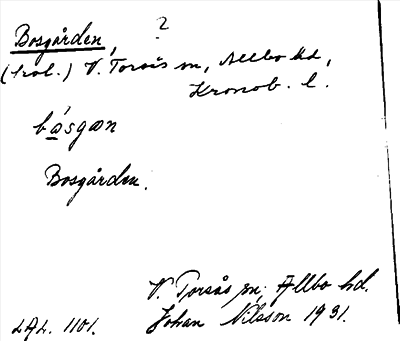 Bosgården, ?
(frol.) V. Torsås sn, Allbo hd,
Kronob. l.
båsgæn
Bosgården.
V. Torsås sn, Allbo hd.
LAL. 1101. Johan Nilsson 1931.